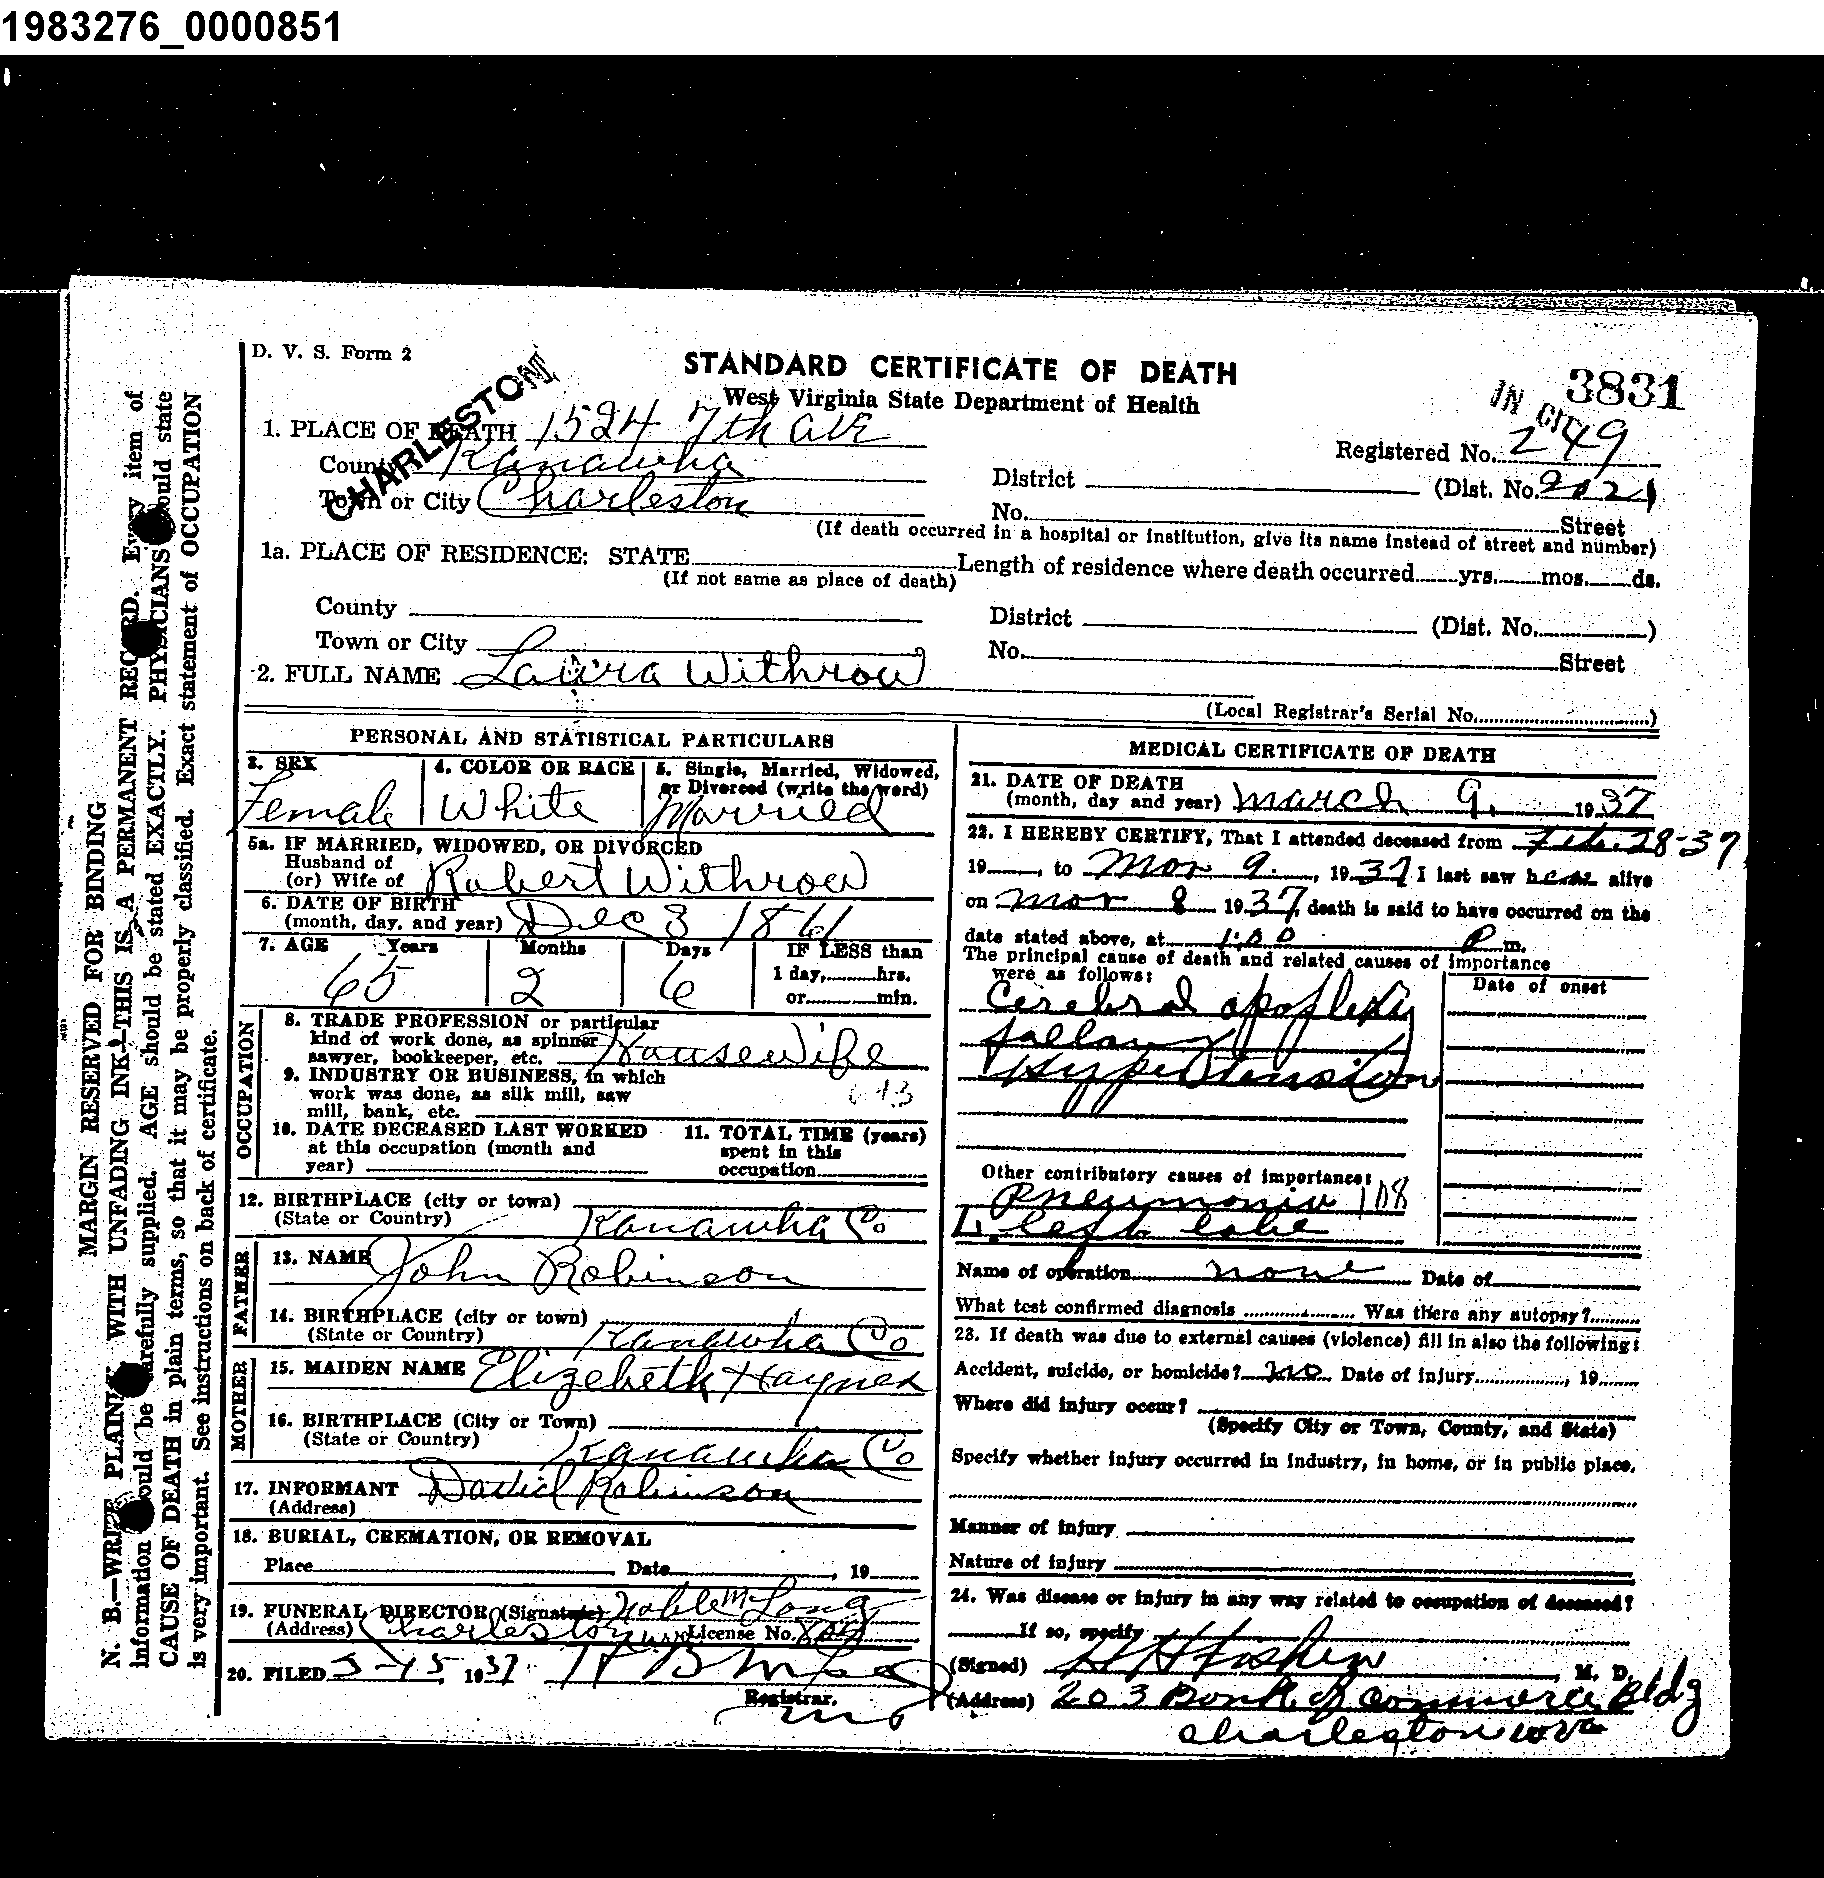 1983276_0000851
D. V. S. Form 2
CHARLESTON
STANDARD CERTIFICATE OF DEATH
West Virginia State Department of Health
IN CITY
3831
1. PLACE OF DEATH 1524 7th ave
Registered No. 249
County Kanawha
District (Dist. No. 2021
Town or City Charleston
No. Street
(If death occurred in a hospital or institution, give its name instead of street and number)
1a. PLACE OF RESIDENCE: STATE Length of residence where death occurred yrs. mos. ds.
(If not same as place of death)
County
District (Dist. No. )
Town or City
No. Street
2. FULL NAME Laura Withrow
(Local Registrar's Serial No. )
PERSONAL AND STATISTICAL PARTICULARS
3. SEX Female
4. COLOR OR RACE White
5. Single, Married, Widowed, or Divorced (write the word) Married
5a. IF MARRIED, WIDOWED, OR DIVORCED
Husband of
(or) Wife of Robert Withrow
6. DATE OF BIRTH
(month, day, and year) Dec 3 1861
7. AGE Years Months Days IF LESS than
65 2 6 1 day, hrs.
or min.
OCCUPATION
8. TRADE PROFESSION or particular
kind of work done, as spinner
sawyer, bookkeeper, etc. Housewife
9. INDUSTRY OR BUSINESS, in which
work was done, as silk mill, saw
mill, bank, etc.
10. DATE DECEASED LAST WORKED
at this occupation (month and
year)
11. TOTAL TIME (years)
spent in this
occupation
12. BIRTHPLACE (city or town)
(State or Country) Kanawha Co
FATHER
13. NAME John Robinson
14. BIRTHPLACE (city or town)
(State or Country) Kanawha Co
MOTHER
15. MAIDEN NAME Elizebeth Haynes
16. BIRTHPLACE (City or Town)
(State or Country) Kanawha Co
17. INFORMANT David Robinson
(Address)
18. BURIAL, CREMATION, OR REMOVAL
Place Date , 19
19. FUNERAL DIRECTOR (Signature) Noble M Long
(Address) Charleston License No.
20. FILED 3-15, 1937
Registrar.
MEDICAL CERTIFICATE OF DEATH
21. DATE OF DEATH
(month, day and year) March 9. 1937
22. I HEREBY CERTIFY, That I attended deceased from Feb. 28-37
19 , to Mar 9. , 1937 I last saw her alive
on Mar 8 1937, death is said to have occurred on the
date stated above, at 1:00 P m.
The principal cause of death and related causes of importance
were as follows:
Date of onset
Cerebral apoplexy
Hypertension
Other contributory causes of importance:
Pneumonia 108
L. left lobe
Name of operation none Date of
What test confirmed diagnosis Was there any autopsy?
23. If death was due to external causes (violence) fill in also the following:
Accident, suicide, or homicide? no Date of injury , 19
Where did injury occur?
(Specify City or Town, County, and State)
Specify whether injury occurred in industry, in home, or in public place.
Manner of injury
Nature of injury
24. Was disease or injury in any way related to occupation of deceased?
If so, specify
(Signed) , M. D.
(Address) 203 Bank of Commerce Bldg
Charleston W Va
MARGIN RESERVED FOR BINDING
N. B.—WRITE PLAINLY WITH UNFADING INK—THIS IS A PERMANENT RECORD. Every item of
information should be carefully supplied. AGE should be stated EXACTLY. PHYSICIANS should state
CAUSE OF DEATH in plain terms, so that it may be properly classified. Exact statement of OCCUPATION
is very important. See instructions on back of certificate.